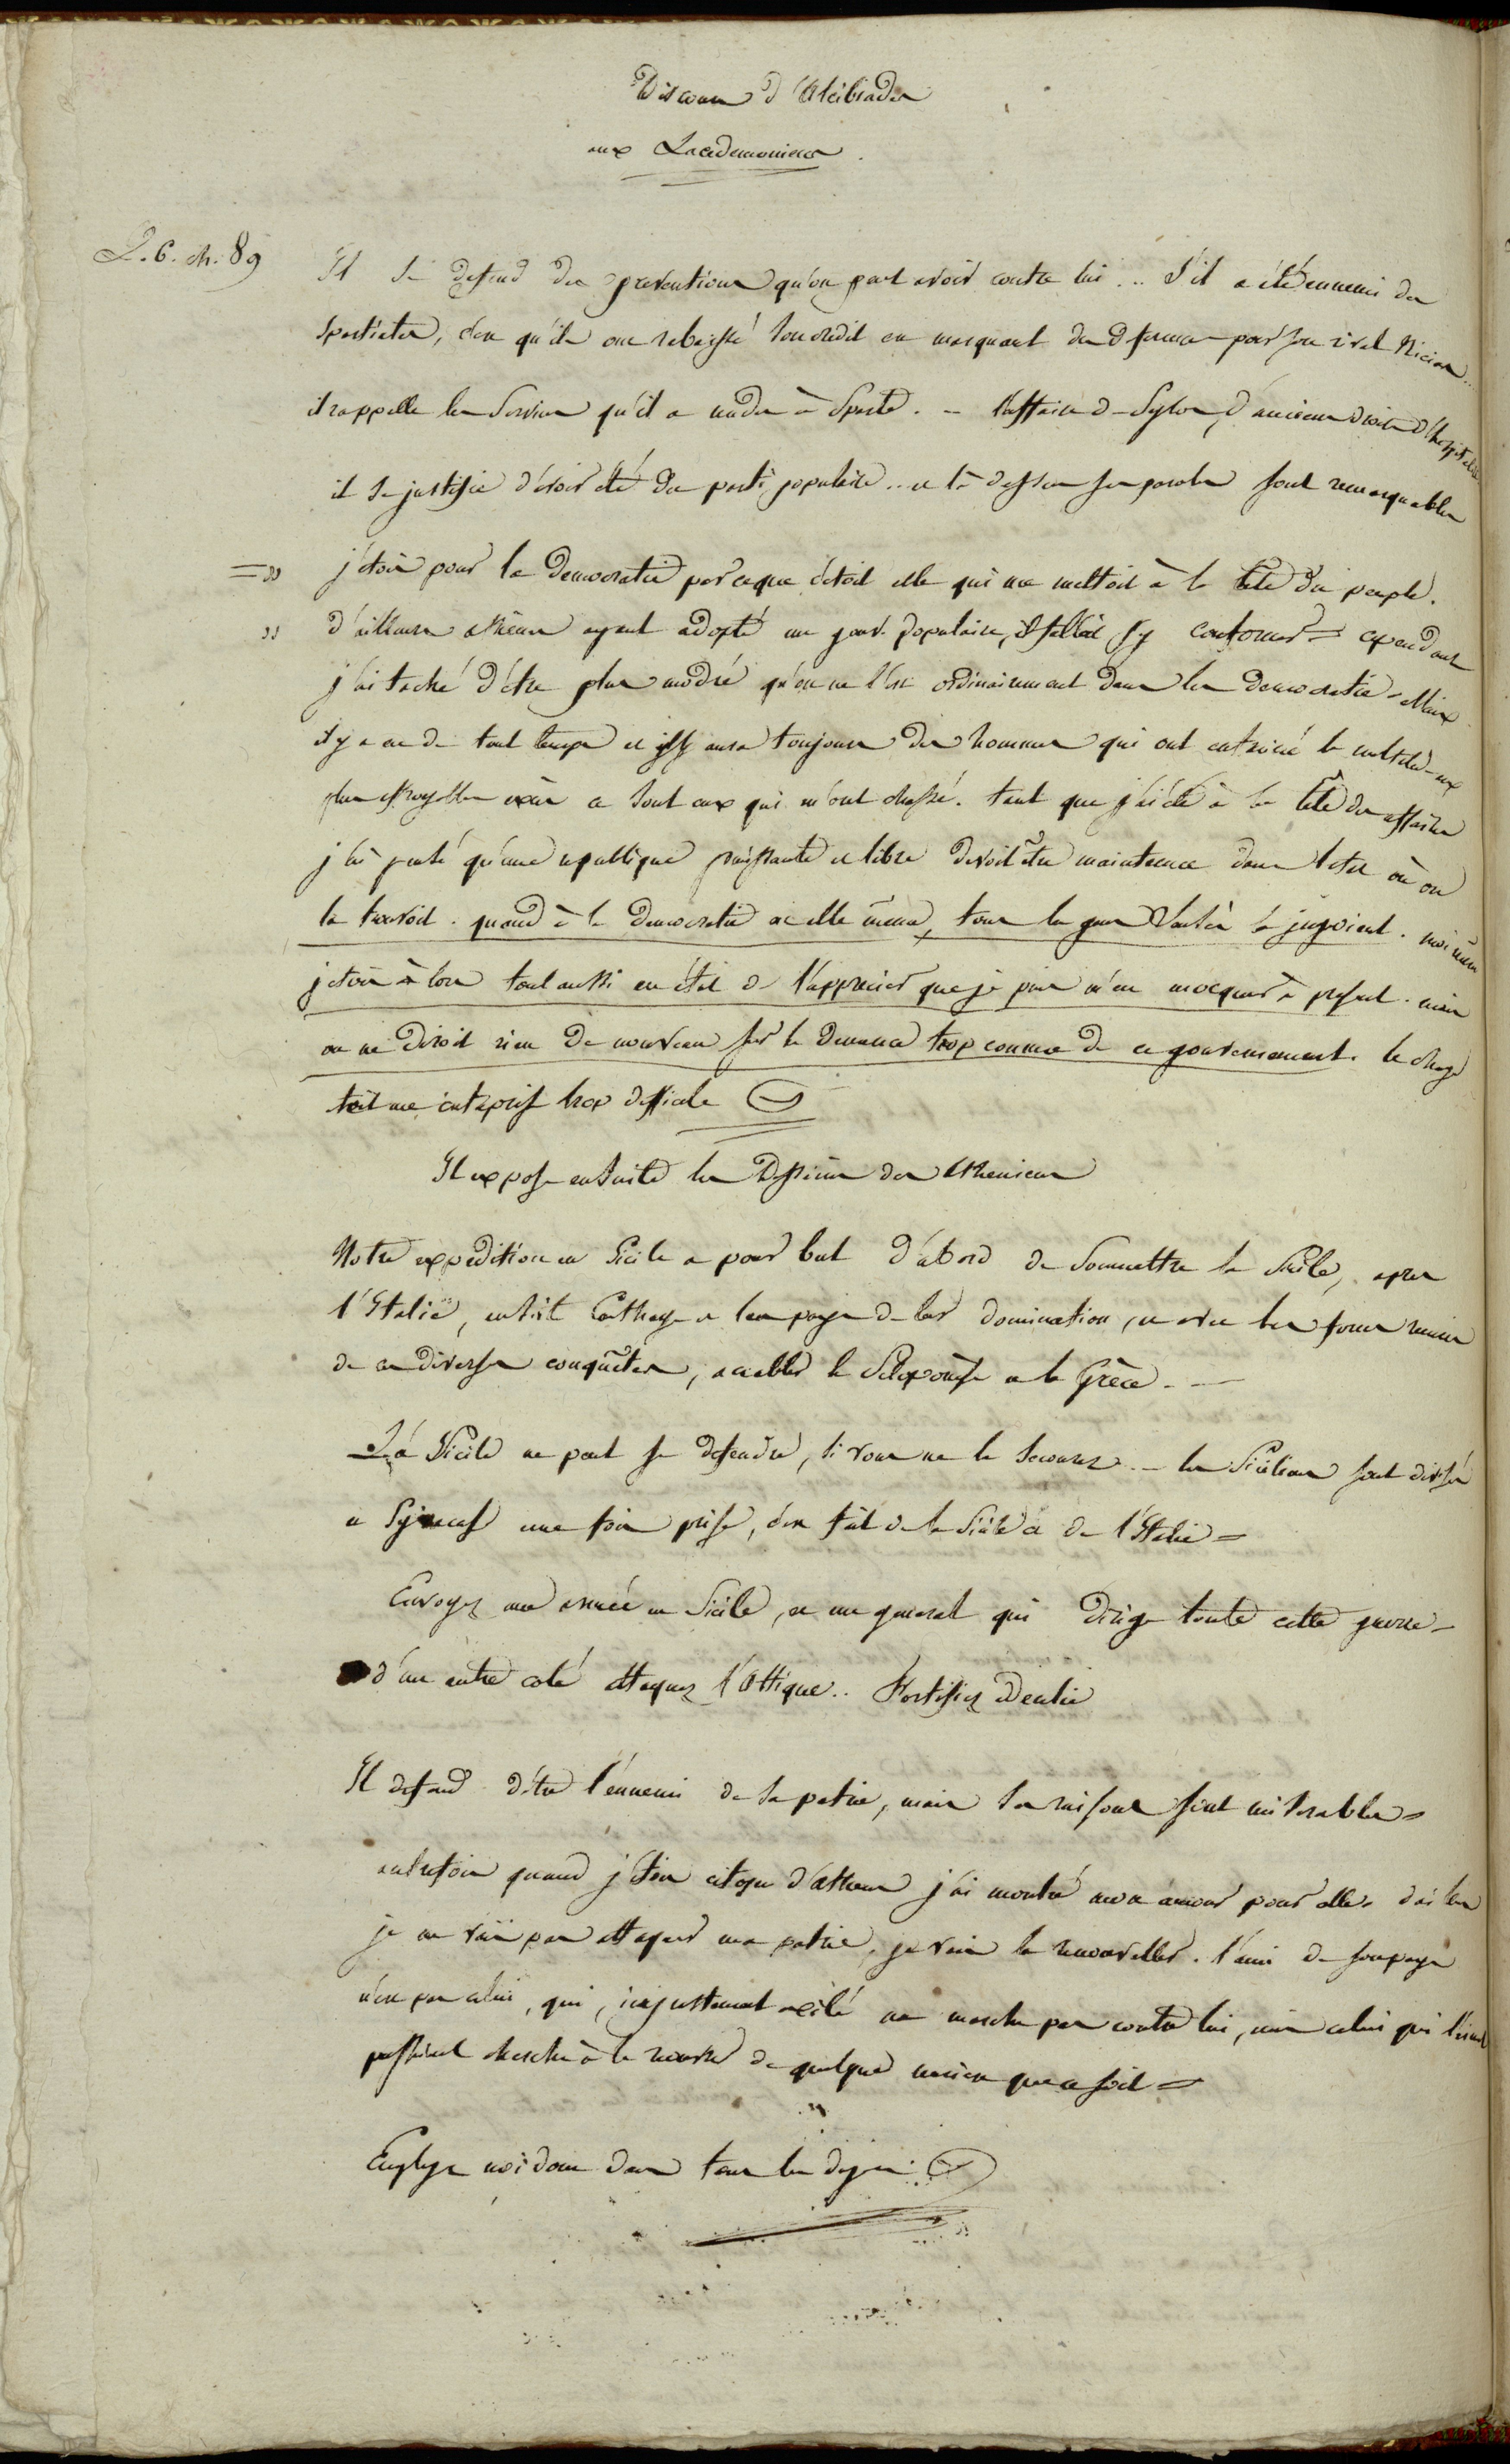 Discours d'Alcibiades
aux Lacedemoniens.
L. 6. ch. 89
Il se defend des preventions qu'on peut avoir contre lui... s'il a été ennemi des
Spartiates, c'est qu'ils ont rabaissé son credit en marquant des deferences pour son rival Nicias..
il rappelle les services qu'il a rendus à Sparte. - l'affaire de Pylos, d'anciens droits d'hospitalité
il se justifie d'avoir été du parti populaire.. et là dessus ses paroles sont remarquables
=» j'étois pour la democratie parceque c'étoit elle qui me mettoit à la tête du peuple.
» d'ailleurs Athènes ayant adopté un gouv. populaire, il falloit s'y conformer = cependant
j'ai taché d'être plus modéré qu'on ne l'est ordinairement dans les democraties. Mais
il y a eu de tout temps et il y aura toujours des hommes qui ont entrainé la multitude aux
plus effroyables excès ce sont eux qui m'ont chassé. tant que j'ai été à la tête des affaires
j'ai pensé qu'une republique puissante et libre devoit être maintenue dans l'état où on
la trouvoit. quand à la democratie en elle même, tous les gens sensés la jugeoient. moi même
j'etois alors tout aussi en état de l'apprecier que je puis m'en mocquer à présent. mais
on ne diroit rien de nouveau sur la demence trop connue de ce gouvernement. le changer
étoit une entreprise trop difficile
Il expose ensuite les desseins des Atheniens
Notre expedition en Sicile a pour but d'abord de soumettre la Sicile, après
l'Italie, ensuite Carthage et les pays de leur domination, et avec les forces reunies
de ces diverses conquêtes, accabler le Peloponèse et la Grèce. -
La Sicile ne peut se defendre, si vous ne la secourez. - les Siciliens sont divisés
et Syracuse une fois prise, c'en est fait de la Sicile et de l'Italie =
Envoyez une armée en Sicile, et un general qui dirige toute cette guerre -
d'un autre coté attaquez l'Attique.. Fortifiez Decelie
Il defend d'être l'ennemi de sa patrie, mais ses raisons sont miserables =
autrefois quand j'étois citoyen d'Athenes j'ai montré mon amour pour elle. d'ailleurs
je ne vais pas attaquer ma patrie, je vais la recouvrer. l'ami de son pays
n'est pas celui, qui, injustement exilé ne marche pas contre lui, mais celui qui l'aimant
cherche à le ravoir de quelque maniere que ce soit =
Employez moi donc dans tous les dangers.